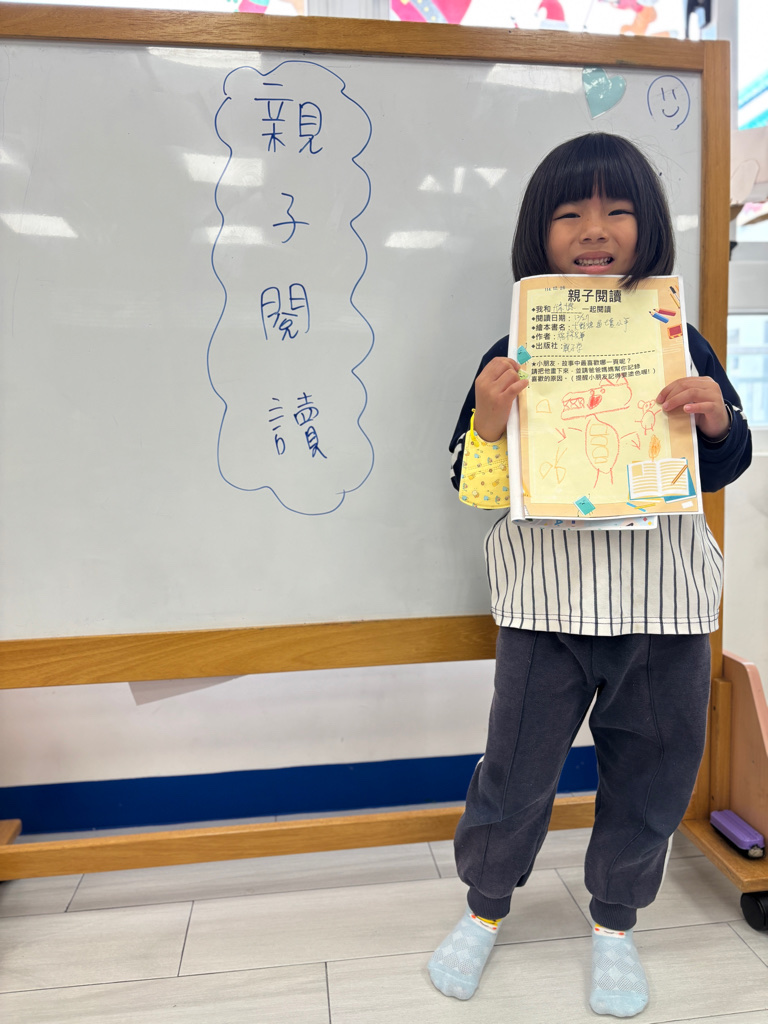 親子閱讀
親子閱讀
★我和 一起閱讀
★閱讀日期：
★繪本書名：
★作者：
★出版社：
★小朋友，故事中最喜歡哪一頁呢？
請把他畫下來，並請爸爸媽媽幫你記錄
喜歡的原因。（提醒小朋友記得要塗色喔！）